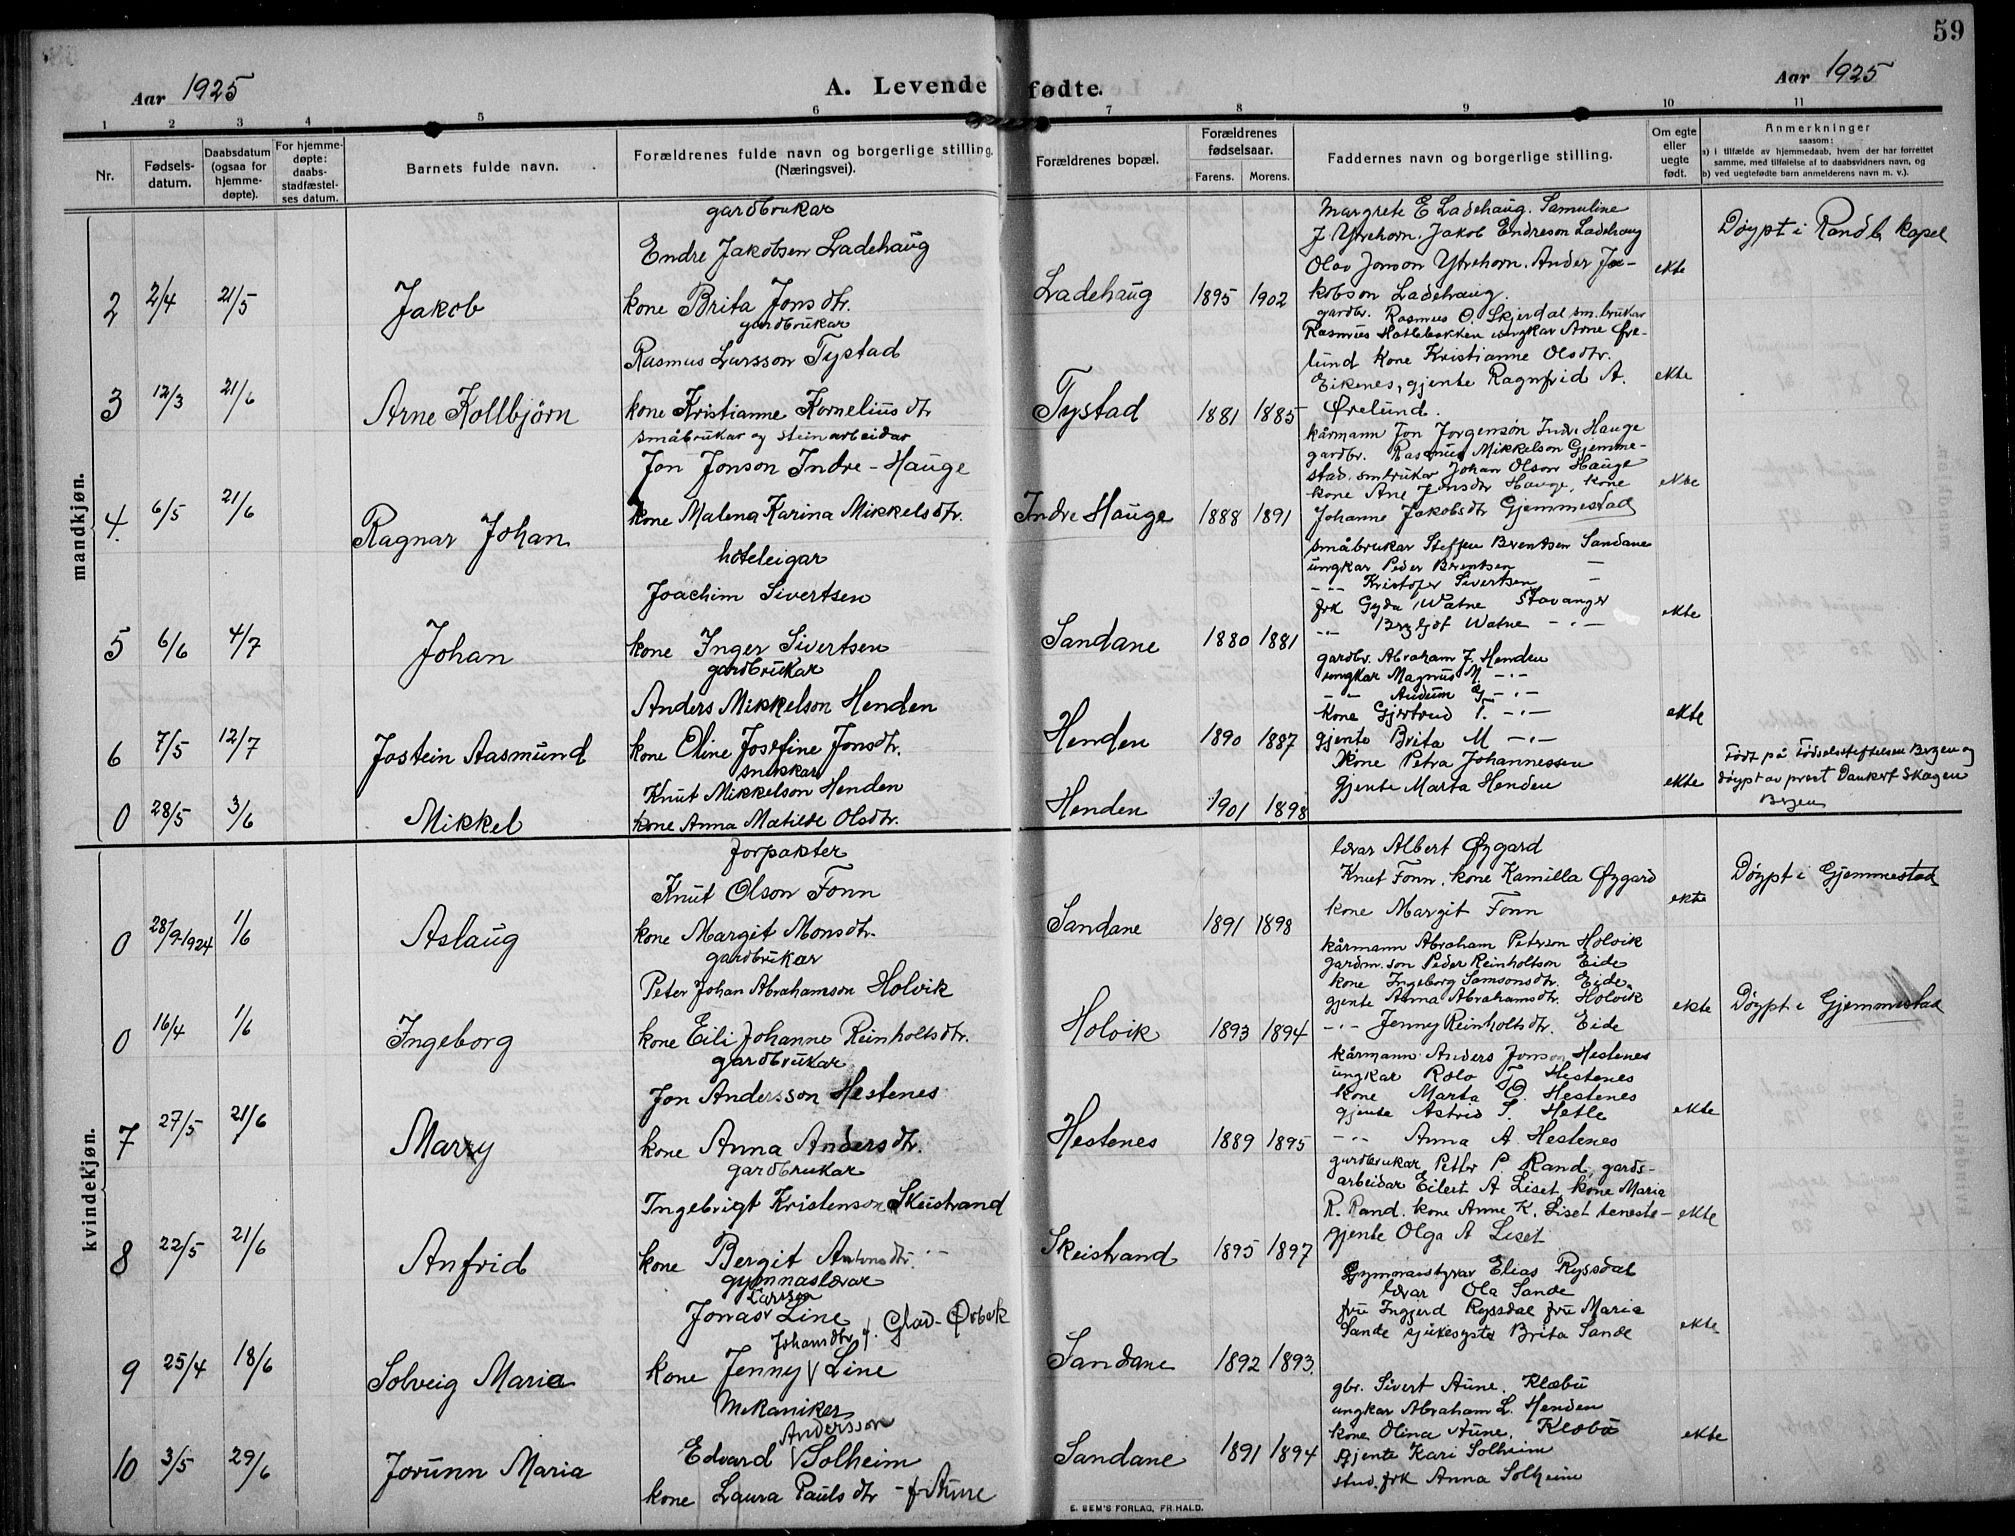 59
Aar 1925
A. Levende fødte.
Aar 1925
1 2 3 4 5 6 7 8 9 10 11
Nr.
Fødsels-datum.
Daabsdatum (ogsaa for hjemme-døpte).
For hjemme-døpte: daabs-stadfæstel-ses datum.
Barnets fulde navn.
Forældrenes fulde navn og borgerlige stilling. (Næringsvei).
Forældrenes bopæl.
Forældrenes fødselsaar.
Farens. Morens.
Faddernes navn og borgerlige stilling.
Om egte eller uegte født.
Anmerkninger
saasom:
a) i tilfælde av hjemmedaab, hvem der har forrettet samme, med tilføielse af to daabsvidners navn, og
b) ved uegtefødte barn anmelderens navn m. v.).
mandkjøn.
2 2/4 21/5 Jakob
gardbrukar
Endre Jakobsen Ladehaug
kone Brita Jonsdtr.
Ladehaug 1895 1902
Margrete E Ladehaug. Samuline
J. Ytrehorn. Jakob Endreson Ladehaug
Olav Jonson Ytrehorn. Ander Ja-
kobson Ladehaug.
ekte
Døypt i Randb. kapel
3 12/3 21/6 Arne Kollbjörn
gardbrukar
Rasmus Larsson Tystad
kone Kristianne Kornelius dtr
Tystad 1881 1885
gardbr. Rasmus O. Skjerdal sm.brukar
Rasmus ungkar Arne Øre-
lund kone Kristianne Olsdtr.
Eikenes, gjente Ragnfrid A.
Ørelund.
ekte
4. 6/5 21/6 Ragnar Johan
småbrukar og steinarbeidar
Jon Jonson Indre-Hauge
kone Malena Karina Mikkelsdtr.
Indre Hauge 1888 1891
kårmann Jon Jorgenson Indre Hauge
gardbr. Rasmus Mikkelson Gjemme-
stad. smbrukar Johan Olson Hauge
kone Ane Jonsdtr Hauge, kone
Johanne Jakobsdtr Gjemmestad
ekte
5 6/6 4/7 Johan
hoteleigar
Joachim Sivertsen
kone Inger Sivertsen
Sandane 1880 1881
småbrukar Steffen Brentsen Sandane
ungkar Peder Brentsen —
-"- Kristofer Sivertsen —
frk Gyda Watne Stavanger
-"- Bergljot Watne -"-
ekte
6 7/5 12/7 Jostein Aasmund
gardbrukar
Anders Mikkelson Henden
kone Oline Josefine Jonsdtr.
Henden 1890 1887
gardbr. Abraham J. Henden
ungkar Magnus M. -"-
- - Audun G -"-
kone Gjertrud T. -"-
gjente Brita M -"-
ekte
0 28/5 3/6 Mikkel
snikkar
Knut Mikkelson Henden
kone Anna Matilde Olsdtr.
Henden 1901 1898
kone Petra Johannessen
gjente Marta Henden
ekte
Født på Fødselsstiftelsen Bergen og
døypt av prest Dankert Skagen
Bergen
kvindekjøn.
0 28/9-1924 1/6 Aslaug
forpakter
Knut Olson Fonn
kone Margit Monsdtr.
Sandane 1891 1898
lærar Albert Øygard
Knut Fonn. kone Kamilla Øygard
kone Margit Fonn
ekte
Døypt i Gjemmestad
0 16/4 1/6 Ingeborg
gardbrukar
Peter Johan Abrahamson Holvik
kone Eili Johanne Reinholtsdtr.
Holvik 1893 1894
kårmann Abraham Peterson Holvik
gardm.son Peder Reinholtson Eide
kone Ingeborg Samsonsdtr. Eide.
gjente Anna Abrahamsdtr. Holvik
-"- Jenny Reinholtsdtr. Eide
ekte
Døypt i Gjemmestad
7 27/5 21/6 Marry
gardbrukar
Jon Andersson Hestenes
kone Anna Andersdtr.
Hestenes 1889 1895
kårmann Anders Jonson Hestenes
ungkar Rolv T Hestenes
kone Marta O. Hestenes
gjente Astrid S. Hetle
-"- Anna A. Hestenes
ekte
8 22/5 21/6 Anfrid
gardbrukar
Ingebrigt Kristenson Skeistrand
kone Bergit Antonsdtr.
Skeistrand 1895 1897
gardbrukar Petter P. Rand, gards-
arbeidar Eilert A Liset, kone Maria
R. Rand. kone Anne K. Liset teneste-
gjente Olga A Liset
ekte
9 25/4 18/6 Solveig Maria
gymnaslærar
Larsson
Jonas V Line
Johansdtr f. Glad-Ørbek
kone Jenny V Line
Sandane 1892 1893.
Gymnasstyrar Elias Ryssdal
lærar Ola Sande
fru Ingjerd Ryssdal fru Maria
Sande sjukesyster Brita Sande
ekte
10 3/5 29/6 Jorunn Maria
Mekaniker
Andersson
Edvard V Solheim
kone Laura Paulsdtr - f. Aune
Sandane 1891 1894
gbr. Sivert Aune. Klæbu
ungkar Abraham L. Henden
kone Olina Aune. Klæbu
gjente Kari Solheim
stud. frk Anna Solheim
ekte
E. SEM'S FORLAG, FR.HALD.